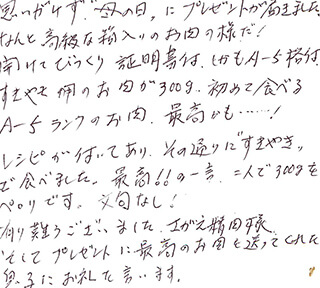 思いがけず、"母の日"にプレゼントが届きました。
なんと高級な箱入りのお肉の様だ！
開けてびっくり 証明書付. しかもA-5格付.
すきやき用のお肉が300g. 初めて食べる
A-5ランクのお肉. 最高かも……！
レシピが付いており. その通りに"すきやき"
で食べました。最高!!の一言. 二人で300gを
ペロリです。文句なし！
有り難うございました. さがえ精肉様.
そしてプレゼントに最高のお肉を送ってくれた
息子にお礼を言います.